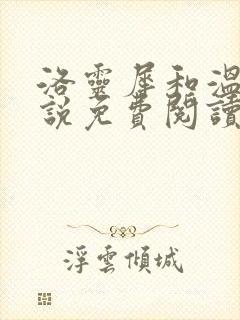 洛靈犀和溫
說免費閱讀
浮雲傾城